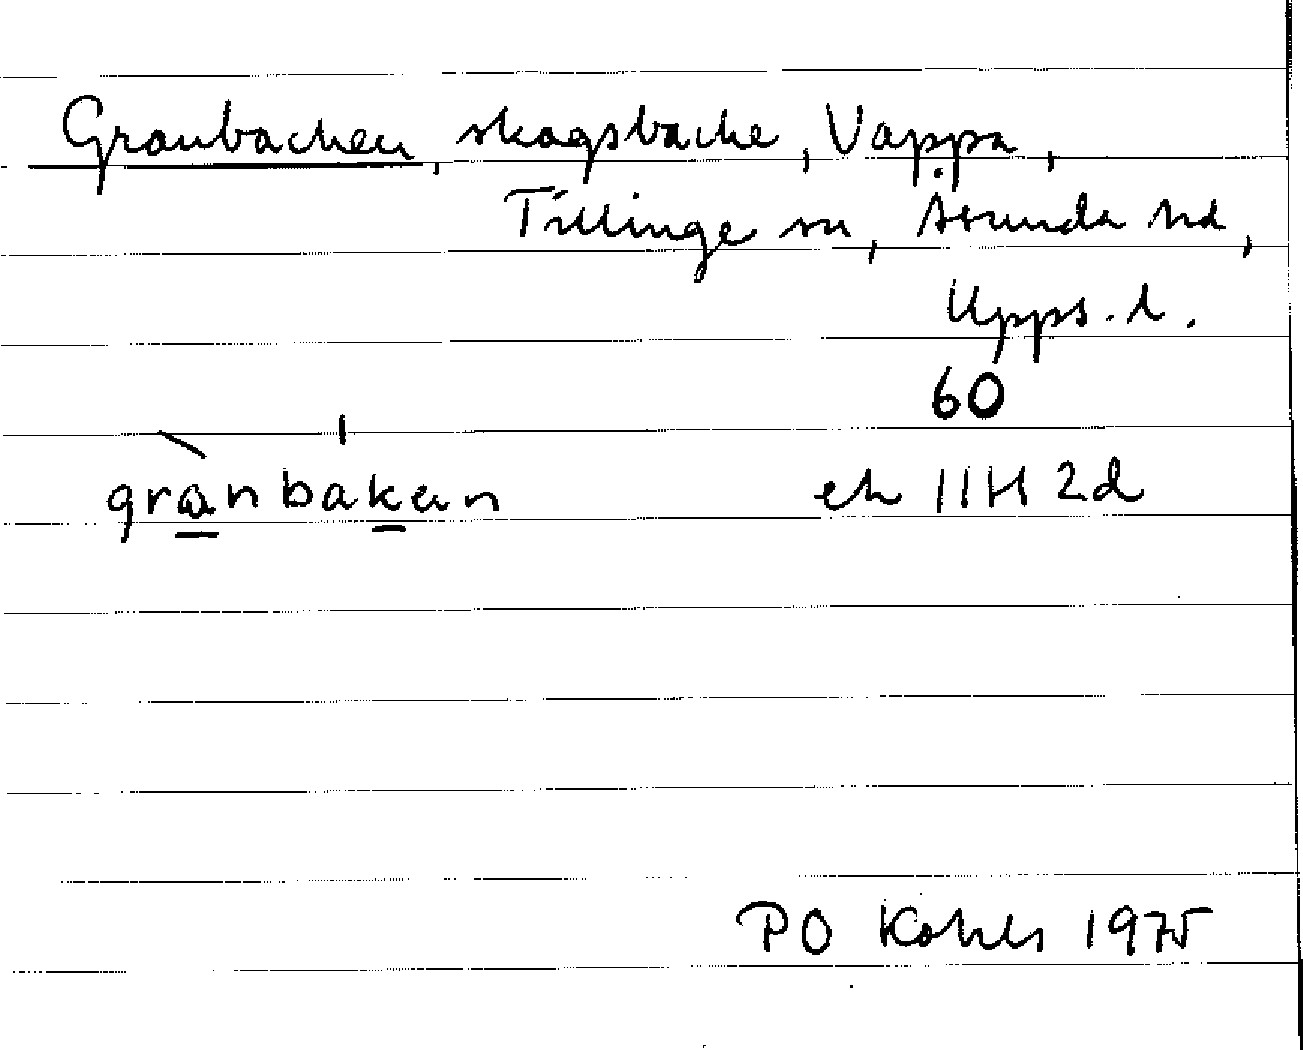 Granbacken, skogsbacke, Vappa,
Tillinge sn, Åsunda hd,
Upps. l.
60
grànbakan ek 11H 2d
PO 1975